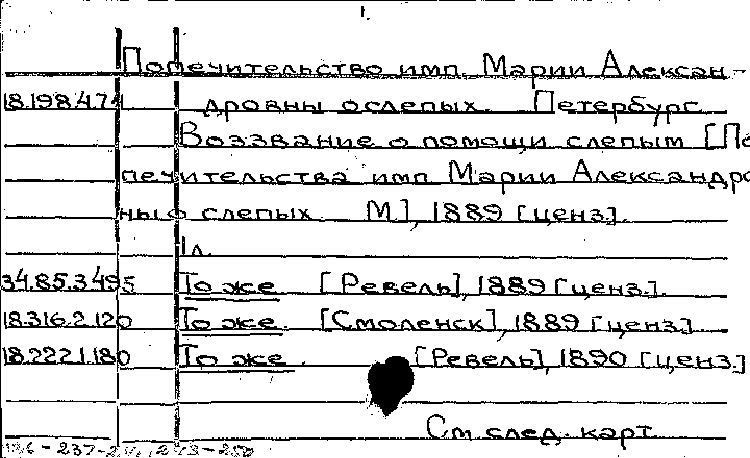 1.
Попечительство имп. Марии Алексан-
18.198.474 дровны о слепых. Петербург.
Воззвание о помощи слепым [По
печительства имп. Марии Александро
ны о слепых. М], 1889 [ценз].
1л.
34.85.3495 То же. [Ревель], 1889 [ценз.].
18.316.2.120 То же. [Смоленск], 1889 [ценз.]
18.222.1.180 То же. [Ревель], 1890 [ценз.]
См. след. карт.